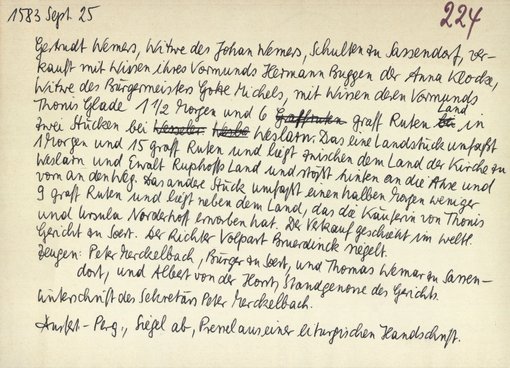 1583 Sept. 25
224
Gertrudt Wemers, Witwe des Johan Wemers, Schulten zu Sassendorf, ver-
kauft mit Wissen ihres Vormunds Hermann Buggen der Anna Klocke,
Witwe des Bürgermeisters Gerke Michels, mit Wissen deren Vormunds
Thonis Glade 1 1/2 Morgen und 6 graff Ruten Land in
zwei Stücken bei Weslarn. Das eine Landstück umfaßt
1 Morgen und 15 graff Ruten und liegt zwischen dem Land der Kirche zu
Weslarn und Ewalt Ruphoffs Land und stößt hinten an die Ahse und
vorn an den Weg. Das andere Stück umfaßt einen halben Morgen weniger
9 graff Ruten und liegt neben dem Land, das die Käuferin von Thonis
und Ursula Norderhof erworben hat. Der Verkauf geschieht im weltl.
Gericht zu Soest. Der Richter Volpart Bruerdinck siegelt.
Zeugen: Peter Merckelbach, Bürger zu Soest, und Thomas Wemar zu Sassen-
dorf, und Albert von der Horst, Standgenosse des Gerichts.
Unterschrift des Sekretärs Peter Merckelbach.
Ausfert.-Perg., Siegel ab, Pressel aus einer liturgischen Handschrift.